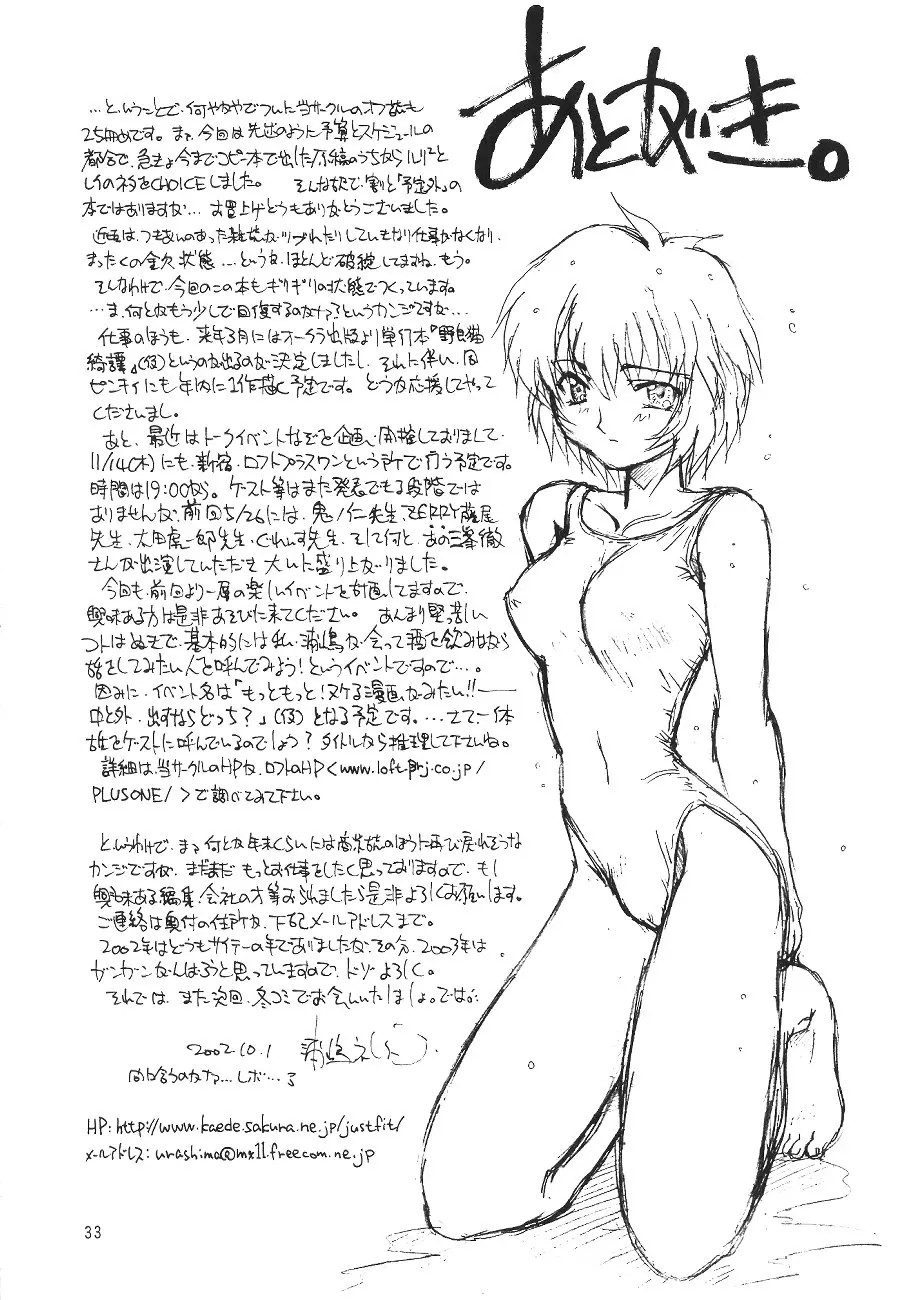 あとがき。
…ということで、何やかやでついに当サークルのオフ誌も
25冊めです。まァ、今回は先述のように予算とスケジュールの
都合で、急きょ今までコピー本で出した原稿のうちからルリ²と
レイのネタをCHOICEしました。 そんな訳で、割と「予定外」の
本ではありますが…お買上げどうもありがとうございました。
近況は、つきあいのあった雑誌がツブれたりしていきなり仕事がなくなり、
まったくの金欠状態…というか、ほとんど破綻してますね、もう。
そんなわけで、今回のこの本もギリギリの状態でつくっています。
…ま、何とかもう少しで回復するのかナァ?というカンジですが…
仕事のほうも、来年3月にはオークラ出版より単行本『野良猫
綺譚』(仮)というのが出るのが決定しましたし、それに伴い、同
ゼンキイにも年内に1作描く予定です。どうか応援してやって
くださいまし。
あと、最近はトークイベントなぞを企画・開催しておりまして、
11/14(木)にも、新宿・ロフトプラスワンという所で行う予定です。
時間は19:00から。ゲスト等はまだ発表できる段階では
ありませんが、前回5/26には、鬼ノ仁先生、ZERRY藤尾
先生、大田虎一郎先生、ぐれいす先生、そして何と、あの三峯徹
さんが出演していただき、大いに盛り上がりました。
今回も、前回より一層の楽しいイベントを計画してますので、
興味ある方は是非あそびに来てください。 あんまり堅苦しい
コトはぬきで、基本的には私・浦嶋が会って酒を飲みながら
話をしてみたい人を呼んでみよう!というイベントですので…。
因みに、イベント名は「もっともっと!ヌケる漫画がみたい!!――
中と外、出すならどっち?」(仮)となる予定です。…さて、一体
誰をゲストに呼んでいるのでしょう?タイトルから推理して下さいね。
詳細は、当サークルのHPか、ロフトのHP<www.loft-prj.co.jp/
PLUSONE/>で調べてみて下さい。
というわけで、まァ何とか年末くらいには商業誌のほうに再び戻れそうな
カンジですが、まだまだもっとお仕事をしたく思っておりますので、もし
興味ある編集・会社の方等おられましたら是非よろしくお願いします。
ご連絡は奥付の住所か、下記メールアドレスまで。
2002年はどうもサイテーの年でありましたが、その分、2003年は
ガンガンがんばろうと思っていますので、ドゾよろしく。
それでは、また次回、冬コミでお会いいたしましょ。では。
2002.10.1
間に合うのかナァ…レポ…了
HP:http://www.kaede.sakura.ne.jp/justfit/
メールアドレス:urashima@mx11.freecom.ne.jp
33